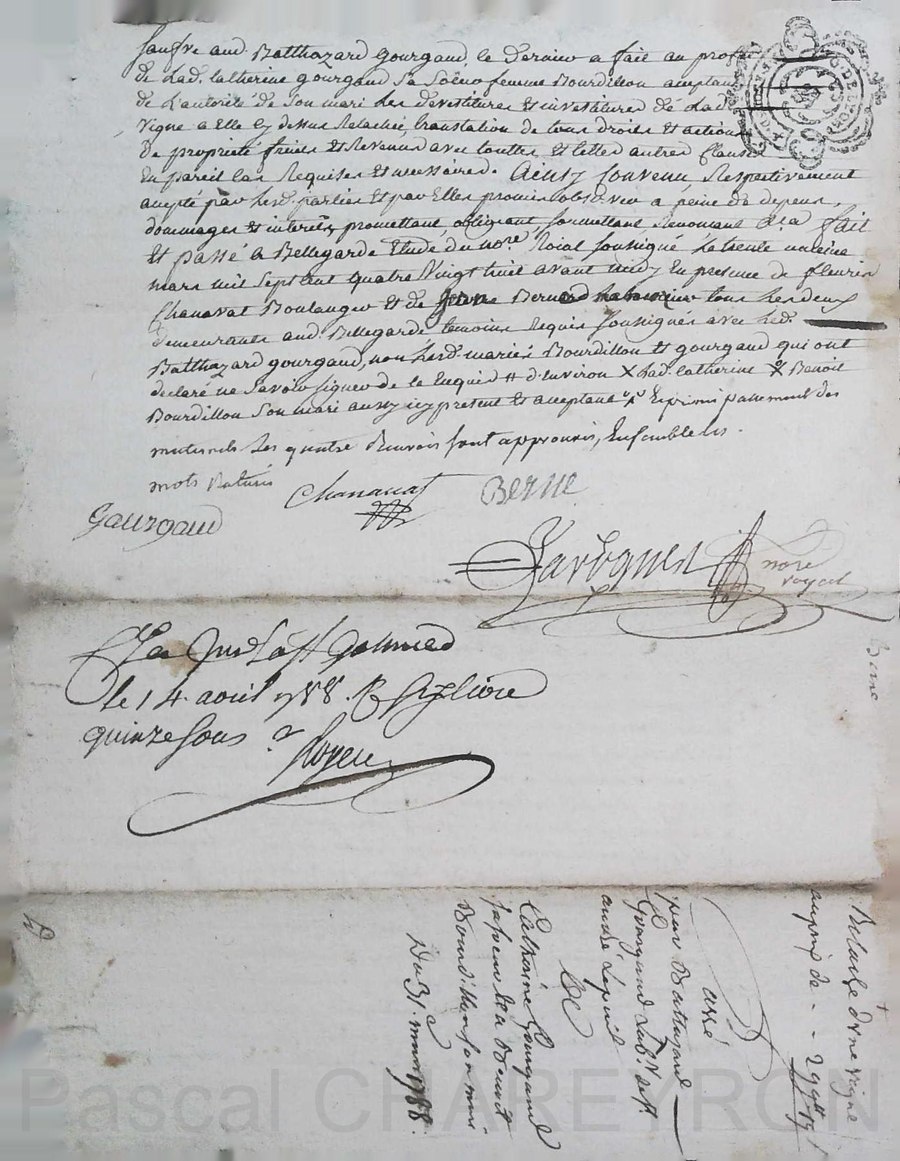 aud. Balthazard gourgaud, le dernier a fait au profit
de Lad. Catherine gourgaud Sa Soeur femme Bourdillon aceptant
de L'autorité de Son mari Les devestitures et investitures de Lad.
Vigne a Elle cy dessus Relachée, translation de tous droits et actions
de propriété fruits et Revenus avec touttes et telles autres Clauses
En pareil Cas Requises et necessaires. Ainsy Convenu Respectivement
accepté par Lesd. parties et par Elles promis observer a peine de depens,
dommages et interets, promettant, obligeant, soumettant Renonçant &a fait
et passé à Bellegarde Etude du nore. Roial Soussigné Le trente
mars mil Sept Cent quatre Vingt huit avant midy En presence de fleurie
Chanavat Boulanger et de Berne tous Les deux
demeurants aud. Bellegarde temoins Requis Soussignés avec led.
Balthazard gourgaud, non Lesd. mariés Bourdillon et gourgaud qui ont
declaré ne Savoir signer de ce Enquis # d'Environ X Lad. Catherine X Benoit
Bourdillon Son mari aussy icy present et aceptant payement des
Les quatre Renvois sont approuvés, Ensemble les
mots Raturés
Gaurgaud
Chanavat
Berne
nore royal
le 14 avril 1788. R six livre
quinze sous
Berne
Relache d'une vigne
au prix de
par Balthazard
Gourgaud
a
Catherine Gourgaud
femme a Benoit
Bourdillon son mari
Du 31. mars 1788.
Pascal CHAREYRON